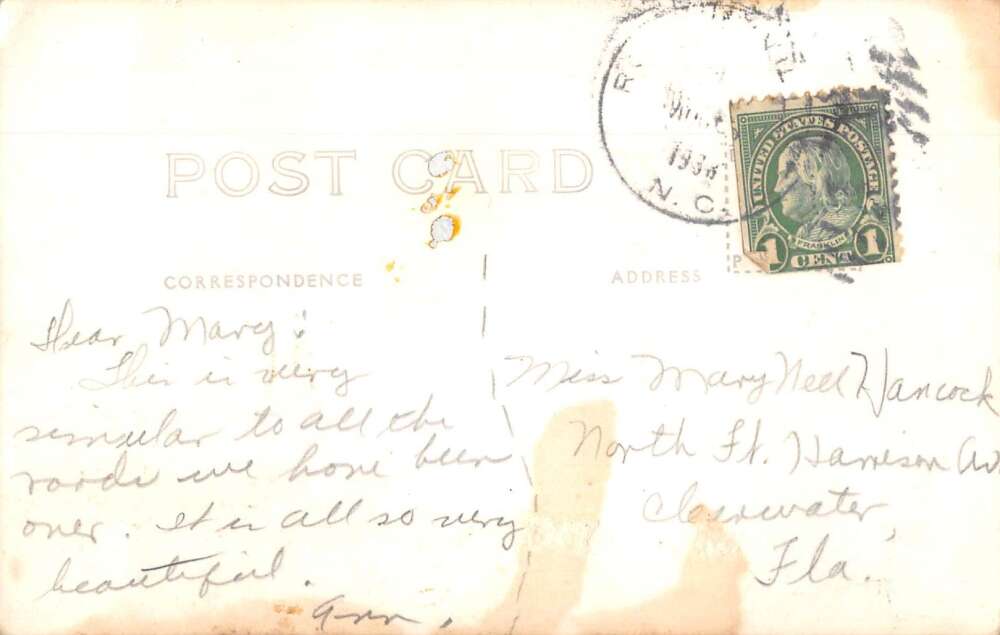 POST CARD
R
1938
N.C.
UNITED STATES POSTAGE
FRANKLIN
1 CENT 1
CORRESPONDENCE
ADDRESS
P
Dear Mary:
This is very
similar to all the
roads we have been
over. It is all so very
beautiful.
Ann.
Miss Mary Nell Hancock
North Ft. Harrison Av
Clearwater,
Fla.